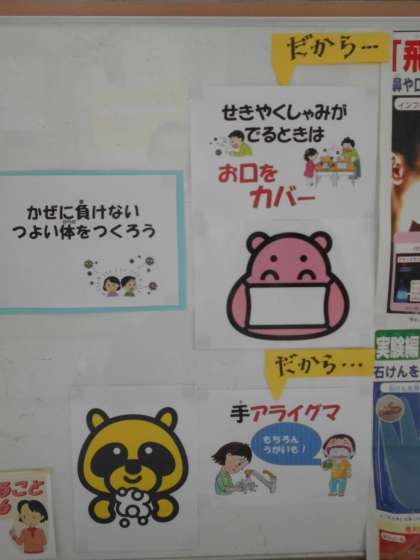 だから…
せきやくしゃみが
でるときは
お口を
カバー
かぜに負けない
つよい体をつくろう
だから…
手アライグマ
もちろん
うがいも!
「飛
鼻や口
インフ
実験編
石けんを
ること